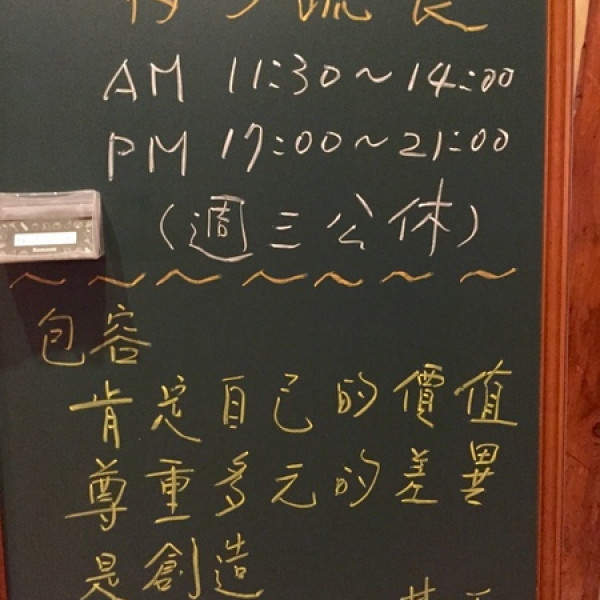 AM 11:30～14:00
PM 17:00～21:00
(週三公休)
～～～～～～～
包容
肯定自己的價值
尊重多元的差異
是創造